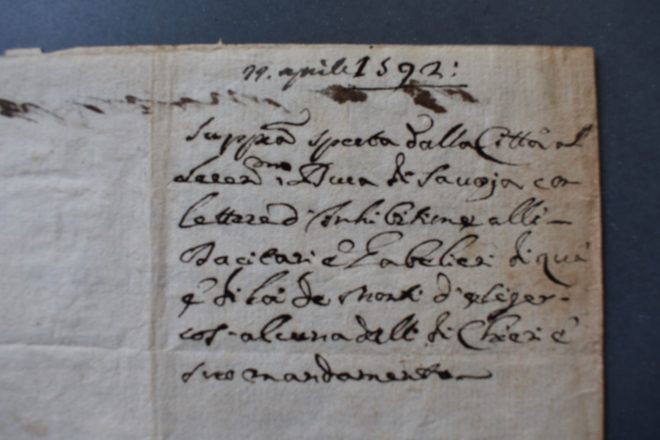 aprile 1592:
supp.ca sporta dalla Città al
Seren.mo Duca di Savoja con
lettere d'inhibitione alli
Dacitari e Gabelieri di quà
e di là de Monti d'esiger
cos-alcuna dalli di Chieri e
suo mandamento